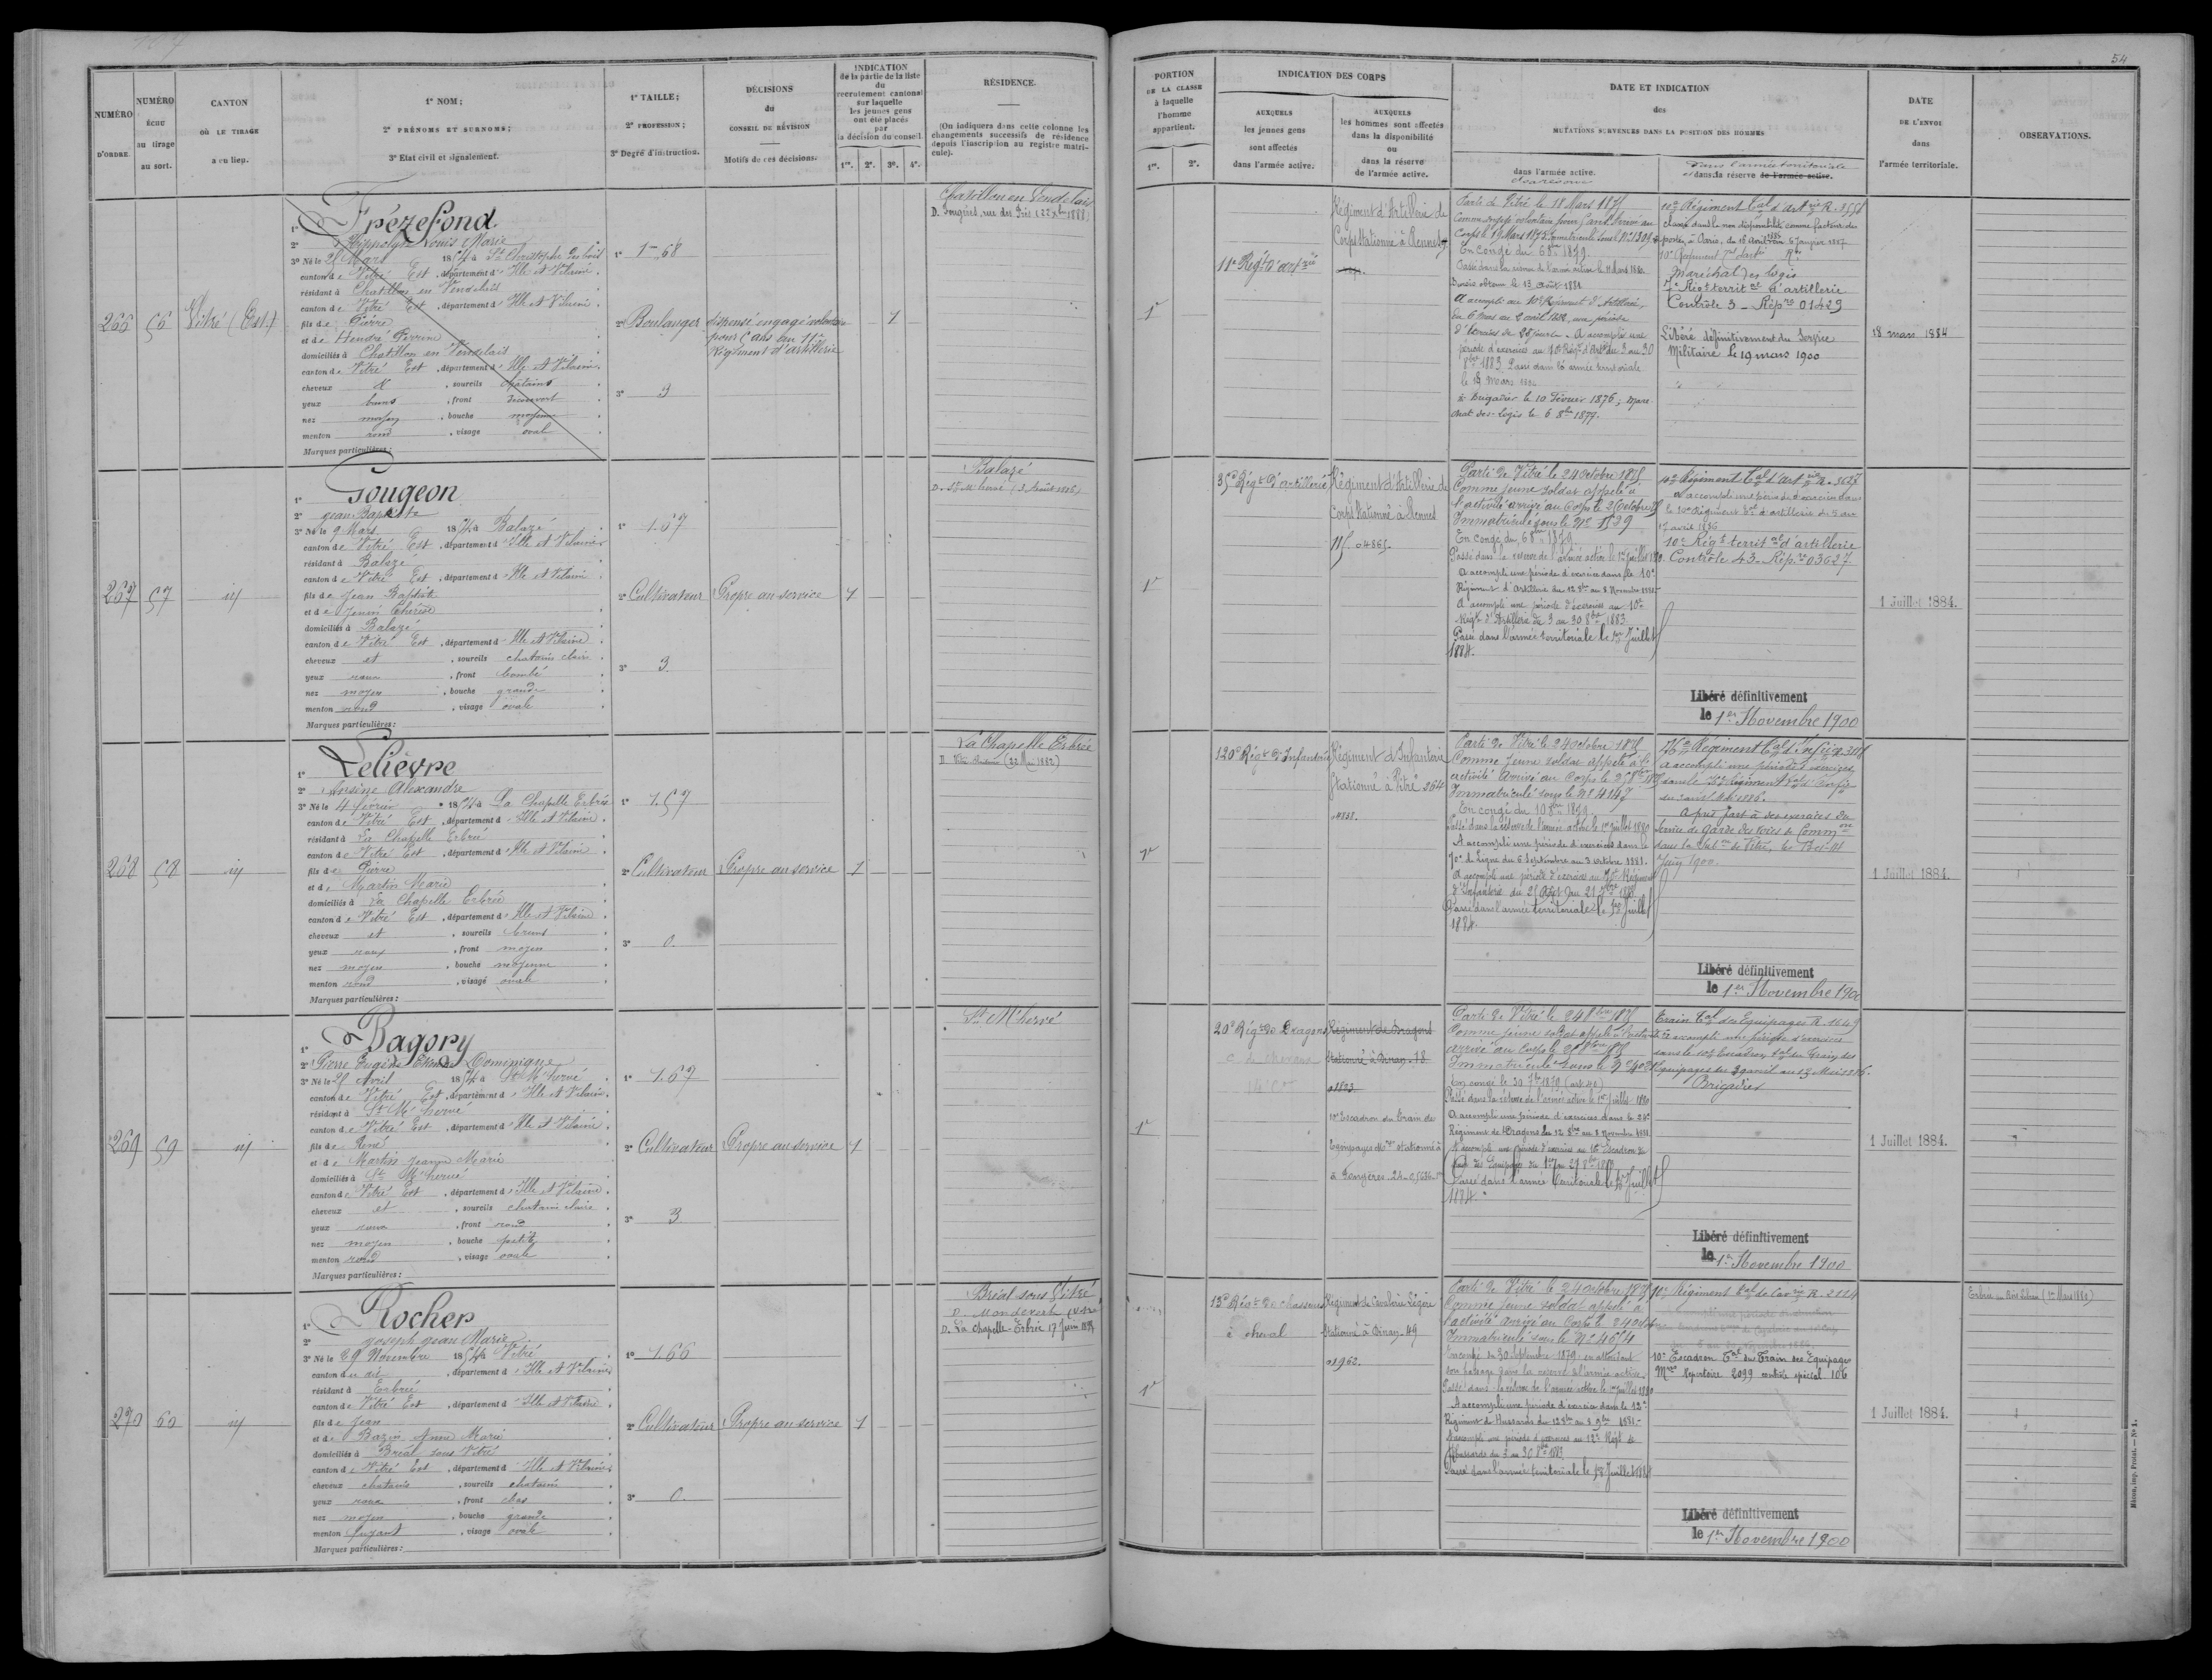 54
NUMÉRO D'ORDRE.
NUMÉRO ÉCHU au tirage au sort.
CANTON OÙ LE TIRAGE a eu lieu.
1° NOM;
2° PRÉNOMS ET SURNOMS;
3° Etat civil et signalement.
1° TAILLE;
2° PROFESSION;
3° Degré d'instruction.
DÉCISIONS du CONSEIL DE RÉVISION
Motifs de ces décisions.
INDICATION de la partie de la liste du recrutement cantonal sur laquelle les jeunes gens ont été placés par la décision du conseil.
1re. 2e. 3e. 4e.
RÉSIDENCE.
(On indiquera dans cette colonne les changements successifs de résidence depuis l'inscription au registre matricule).
PORTION DE LA CLASSE à laquelle l'homme appartient.
1re. 2e.
INDICATION DES CORPS
AUXQUELS les jeunes gens sont affectés dans l'armée active.
AUXQUELS les hommes sont affectés dans la disponibilité ou dans la réserve de l'armée active.
DATE ET INDICATION des MUTATIONS SURVENUES DANS LA POSITION DES HOMMES
dans l'armée active.
Dans l'armée territoriale
et dans la réserve de l'armée active.
DATE DE L'ENVOI dans l'armée territoriale.
OBSERVATIONS.
266
56
Vitré (Est)
1° Frézefond
2° Hippolyte Louis Marie
3° Né le 25 Mars 1854 à St Christophe des bois
canton de Vitré Est, département d'Ille et Vilaine
résidant à Chatillon en Vendelais
canton de Vitré Est, département d'Ille et Vilaine
fils de Pierre
et de Hendré Perrine
domiciliés à Chatillon en Vendelais
canton de Vitré Est, département d'Ille et Vilaine
cheveux et, sourcils châtains
yeux bruns, front découvert
nez moyen, bouche moyenne
menton rond, visage oval
Marques particulières:
1° 1m 68
2° Boulanger
3° 3
dispensé engagé volontaire
pour 5 ans au 11e
Régiment d'artillerie
1
Chatillon en Vendelais
D. Fougères, rue des Prés (22 Xbre 1888)
1r
11e Régt d'artrie
Régiment d'Artillerie de
Corps Stationné à Rennes
Parti de Vitré le 18 Mars 1875
Comme engagé volontaire pour 5 ans. Arrivé au
En Congé du 6 8bre 1879.
Passé dans la réserve de l'armée active le 18 Mars 1880.
A accompli au 10e Régiment d'Artillerie,
du 6 Mars au 2 avril 1882, une période
d'Exercices de 28 jours. A accompli une
période d'exercices au 10e Régt d'Artie du 3 au 30
8bre 1883. Passé dans l'armée territoriale
le 18 Mars 1884
Brigadier le 10 Février 1876; Maré-
chal des Logis le 6 8bre 1879.
10e Régiment Tal d'Artrie R. 3558
classé dans la non disponibilité comme facteur des
postes, à Paris, du 16 Avril 1886 au 6 Janvier 1887.
Maréchal des logis
7e Régt territal d'artillerie
Contrôle 3 - Répre 01429
Libéré définitivement du Service
Militaire le 19 mars 1900
18 mars 1884
267
57
id
1° Gougeon
2° Jean Baptiste
3° Né le 9 Mars 1854 à Balazé
canton de Vitré Est, département d'Ille et Vilaine
résidant à Balazé
canton de Vitré Est, département d'Ille et Vilaine
fils de Jean Baptiste
et de Jeuin Thérèse
domiciliés à Balazé
canton de Vitré Est, département d'Ille et Vilaine
cheveux et, sourcils chatains clairs
yeux roux, front bombé
nez moyen, bouche grande
menton rond, visage ovale
Marques particulières:
1° 1.67
2° Cultivateur
3° 3.
Propre au service
1
Balazé
D. St M'hervé (3 Août 1886)
1r
35e Régt d'artillerie
Régiment d'Artillerie de
Corps Stationné à Rennes
115. 04865.
Parti de Vitré le 24 octobre 1875
Comme jeune soldat appelé à
l'activité arrivé au Corps le 26 octobre
Immatriculé sous le No 1529
En congé du 6 8bre 1879
Passé dans la réserve de l'armée active le 1er Juillet 1880.
A accompli une période d'exercices dans le 10e
Régiment d'Artillerie du 12 8bre au 8 Novembre 1881.
A accompli une période d'exercices au 10e
Régt d'Artillerie du 3 au 30 8bre 1883.
Passé dans l'armée territoriale le 1er Juillet
1884.
10e Régiment Tal d'Artrie R. 3627
A accompli une période d'exercices dans
le 10e Régiment Tal d'artillerie du 5 au
17 avril 1886
10e Régt territal d'artillerie
Contrôle 43 - Répre 03627.
Libéré définitivement
le 1er Novembre 1900
1 Juillet 1884.
268
58
id
1° Lelièvre
2° Ansine Alexandre
3° Né le 4 février 1854 à La Chapelle Erbrée
canton de Vitré Est, département d'Ille et Vilaine
résidant à La Chapelle Erbrée
canton de Vitré Est, département d'Ille et Vilaine
fils de Pierre
et de Martin Marie
domiciliés à La Chapelle Erbrée
canton de Vitré Est, département d'Ille et Vilaine
cheveux et, sourcils bruns
yeux roux, front moyen
nez moyen, bouche moyenne
menton rond, visage ovale
Marques particulières:
1° 1.57
2° Cultivateur
3° 0.
Propre au service
1
La Chapelle Erbrée
(22 Mai 1882)
1r
120e Régt d'Infanterie
Régiment d'Infanterie
Stationné à Vitré 264
04838.
Parti de Vitré le 24 octobre 1875
Comme jeune soldat appelé à l'
activité Arrivé au Corps le 25 8bre 1875
Immatriculé sous le No 4147
En congé du 10 8bre 1879
Passé dans la réserve de l'armée active le 1er Juillet 1880
A accompli une période d'exercices dans le
70e de Ligne du 6 Septembre au 3 octobre 1881.
A accompli une période d'exercices au 70e Régiment
d'Infanterie du 25 Août au 21 7bre 1883.
Passé dans l'armée territoriale le 1er Juillet
1884.
76e Régiment Tal d'Infrie R. 308
A accompli une période d'exercices
dans le 76e Régiment Tal d'Infrie
A pris part à des exercices du
Service de Garde des Voies de Common
dans la Subon de Vitré, les 13 et 14
Juin 1900.
Libéré définitivement
le 1er Novembre 1900
1 Juillet 1884.
269
59
id
1° Bagory
2° Pierre Eugène Etienne Dominique
3° Né le 25 Avril 1854 à St M'hervé
canton de Vitré Est, département d'Ille et Vilaine
résidant à St M'hervé
canton de Vitré Est, département d'Ille et Vilaine
fils de René
et de Martin Jeanne Marie
domiciliés à St M'hervé
canton de Vitré Est, département d'Ille et Vilaine
cheveux et, sourcils chatains clairs
yeux roux, front rond
nez moyen, bouche petite
menton rond, visage ovale
Marques particulières:
1° 1.67
2° Cultivateur
3° 3
Propre au service
1
St M'hervé
1r
20e Régt de Dragons
Régiment de Dragons
Stationné à Dinan. 18
01823
10e Escadron du Train des
Equipages Mres stationné à
à Fougères. 24.
Parti de Vitré le 24 8bre 1875
Comme jeune soldat appelé à l'activité
arrivé au Corps le 25 8bre 1875
En congé le 30 7bre 1879
Passé dans la réserve de l'armée active le 1er Juillet 1880
A accompli une période d'exercices dans le 24e
Régiment de Dragons du 12 8bre au 8 Novembre 1881.
A accompli une période d'exercices au 10e Escadron du
Train des Equipages
Passé dans l'armée Territoriale le 1er Juillet
1884.
Train Tal des Equipages R. 1649
A accompli une période d'exercices
dans le 10e Escadron Tal du Train des
Equipages
Brigadier
Libéré définitivement
le 1er Novembre 1900
1 Juillet 1884.
270
60
id
1° Rocher
2° Joseph Jean Marie
3° Né le 29 Novembre 1854 à Vitré
canton du dit, département d'Ille et Vilaine
résidant à Erbrée
canton de Vitré Est, département d'Ille et Vilaine
fils de Jean
et de Bazin Anne Marie
domiciliés à Bréal sous Vitré
canton de Vitré Est, département d'Ille et Vilaine
cheveux chatains, sourcils chatains
yeux roux, front bas
nez moyen, bouche grande
menton fuyant, visage ovale
Marques particulières:
1° 1.66
2° Cultivateur
3° 0.
Propre au service
1
Bréal sous Vitré
D. Mondevert
D. La Chapelle-Erbrée 17 Juin
1r
13e Régt de chasseurs
à cheval
Régiment de Cavalerie Légère
Stationné à Dinan. 49
01962.
Parti de Vitré le 24 octobre 1875
Comme jeune soldat appelé à
l'activité arrivé au Corps le 24 octobre
Immatriculé sous le No 4654
En congé du 30 Septembre 1879 en attendant
son passage dans la réserve de l'armée active.
Passé dans la réserve de l'armée active le 1er Juillet 1880
A accompli une période d'exercices dans le 12e
Régiment de Hussards du 12 8bre au 8 9bre 1881.
A accompli une période d'exercices au 12e Régt de
Hussards du 3 au 30 8bre 1883.
Passé dans l'armée territoriale le 1er Juillet 1884
10e Régiment Tal de Cavrie R. 2124
10e Escadron Tal du Train des Equipages
Mres Répertoire 2099 contrôle spécial 106
Libéré définitivement
le 1er Novembre 1900
1 Juillet 1884.
Mâcon, imp. Protat. — No 1.